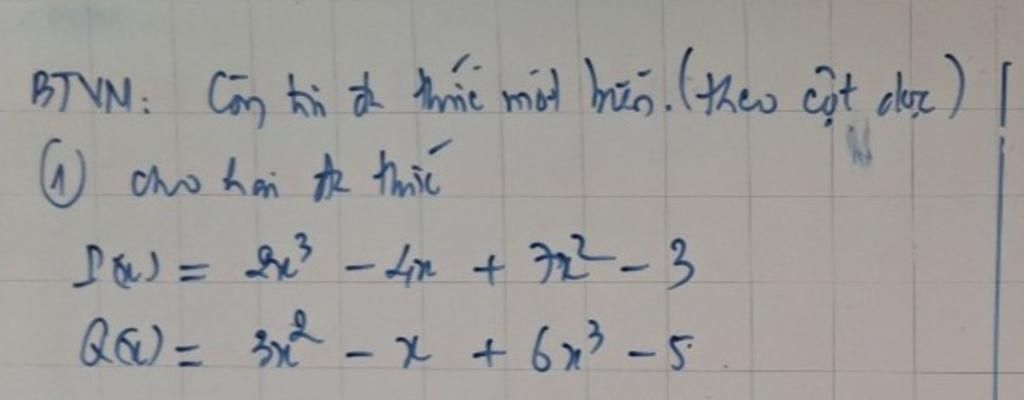 BTVN: Cộng trừ đa thức một biến. (theo cột dọc)
① cho hai đa thức
P(x) = 2x³ - 4x + 7x² - 3
Q(x) = 3x² - x + 6x³ - 5